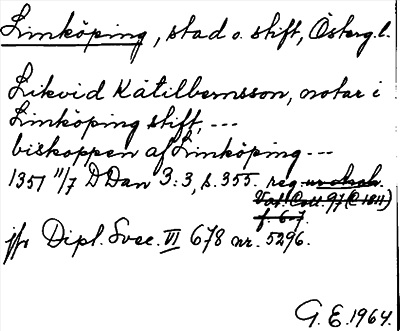 Linköping, stad o. stift, Österg.l.
Likvid Kätilbernsson, notar i
Linköping stift, ---
biskoppen af Linköping ---
1357 11/7 DDan 3:3, s. 355. reg ur avskr.
Vat. Coll. 97 (C 1811)
f. 6-7.
jfr Dipl. Svec. VI 678 nr. 5296.
G. E. 1964.